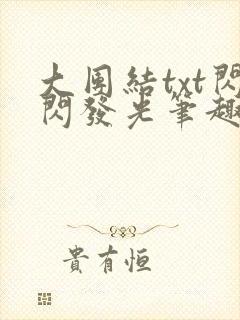 大團結txt閃
閃發光筆趣
貴有恒